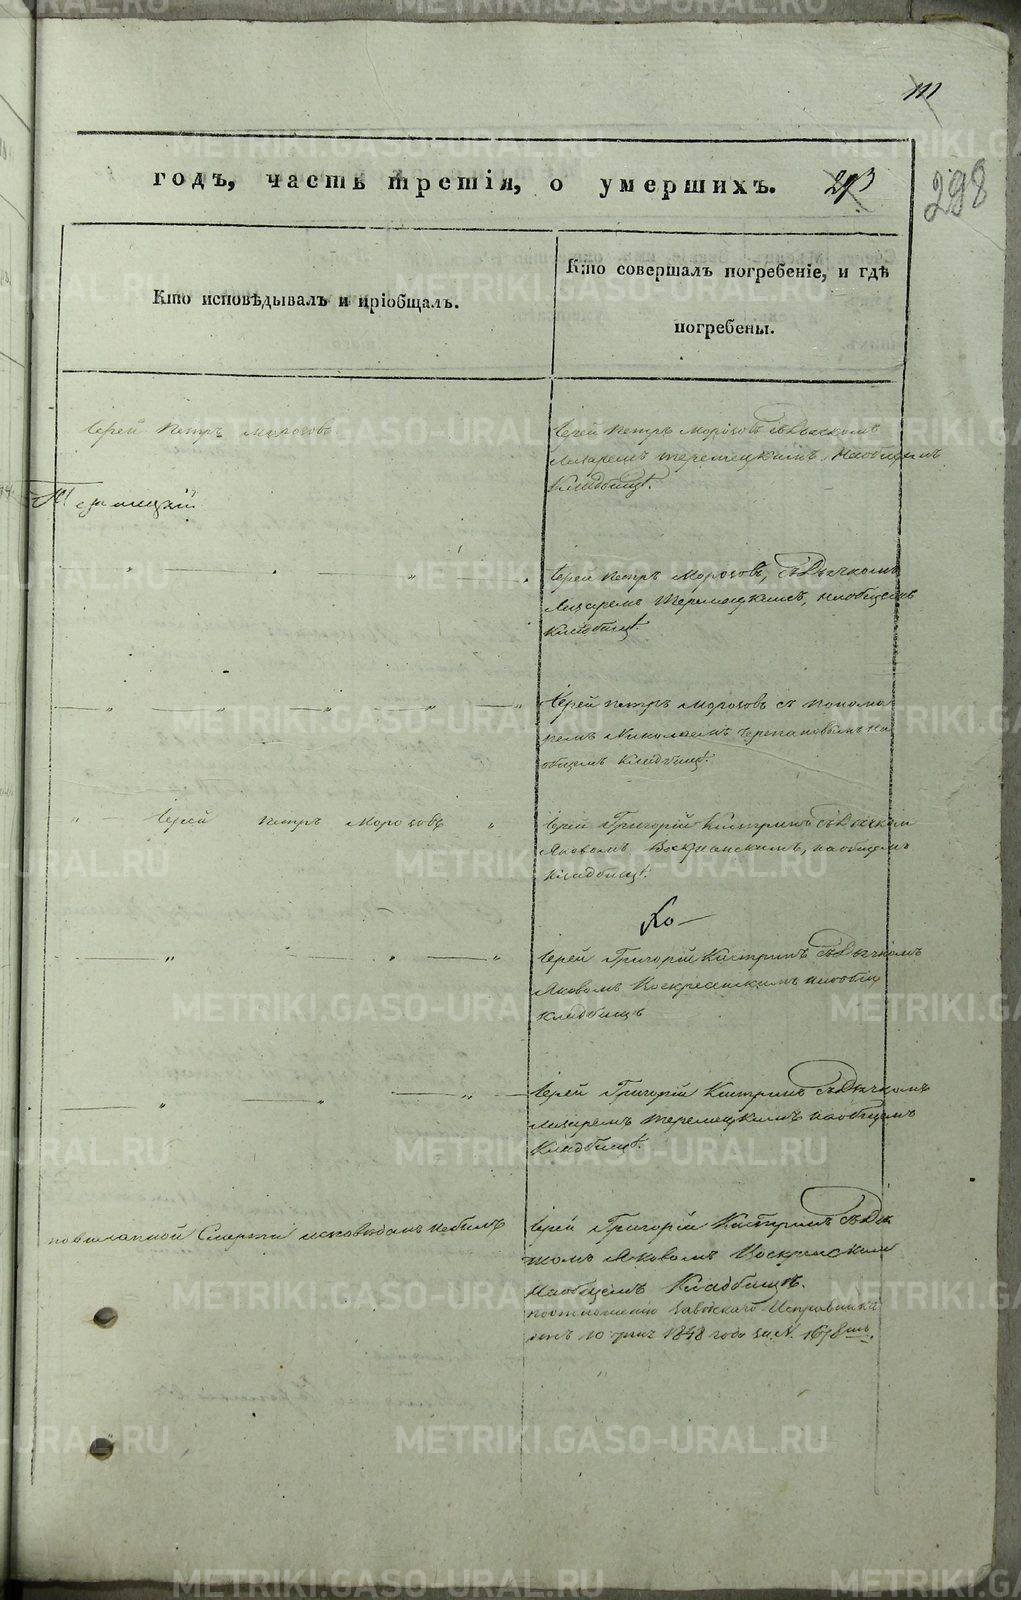 годъ, часть третія, о умершихъ.
293
298
Кто исповѣдывалъ и пріобщалъ.
Кто совершалъ погребеніе, и гдѣ
погребены.
Іерей Петръ Морозовъ
Іерей Петръ Морозовъ съ Дьячкомъ
Лазаремъ Теремецкимъ, Наобщемъ
Кладбищѣ.
Іерей Петръ Морозовъ, съ Дьячкомъ
Лазаремъ Теремецкимъ, наобщемъ
Кладбищѣ.
Іерей Петръ Морозовъ съ Понома
ремъ Николаемъ Черепановымъ на
общемъ Кладбищѣ.
Іерей Петръ Морозовъ
Іерей Григорій Кастринъ съ Дьячком
Яковомъ Воскресенскимъ, наобщемъ
Кладбищѣ.
Іерей Григорій Кастринъ съ Дьячкомъ
Яковомъ Воскресенскимъ наобщ
кладбищѣ
Іерей Григорій Кастринъ съ Дьячкомъ
Лазаремъ Теремецкимъ наобщемъ
Кладбищѣ.
повнезапной Смерти исповѣданъ небылъ
Іерей Григорій Кастринъ съ Дья
комъ Яковомъ Воскресенским
Наобщемъ Кладбищѣ.
поотношенію Заводскаго Исправника
отъ 10 1848 года за N. 1678мъ.
METRIKI.GASO-URAL.RU